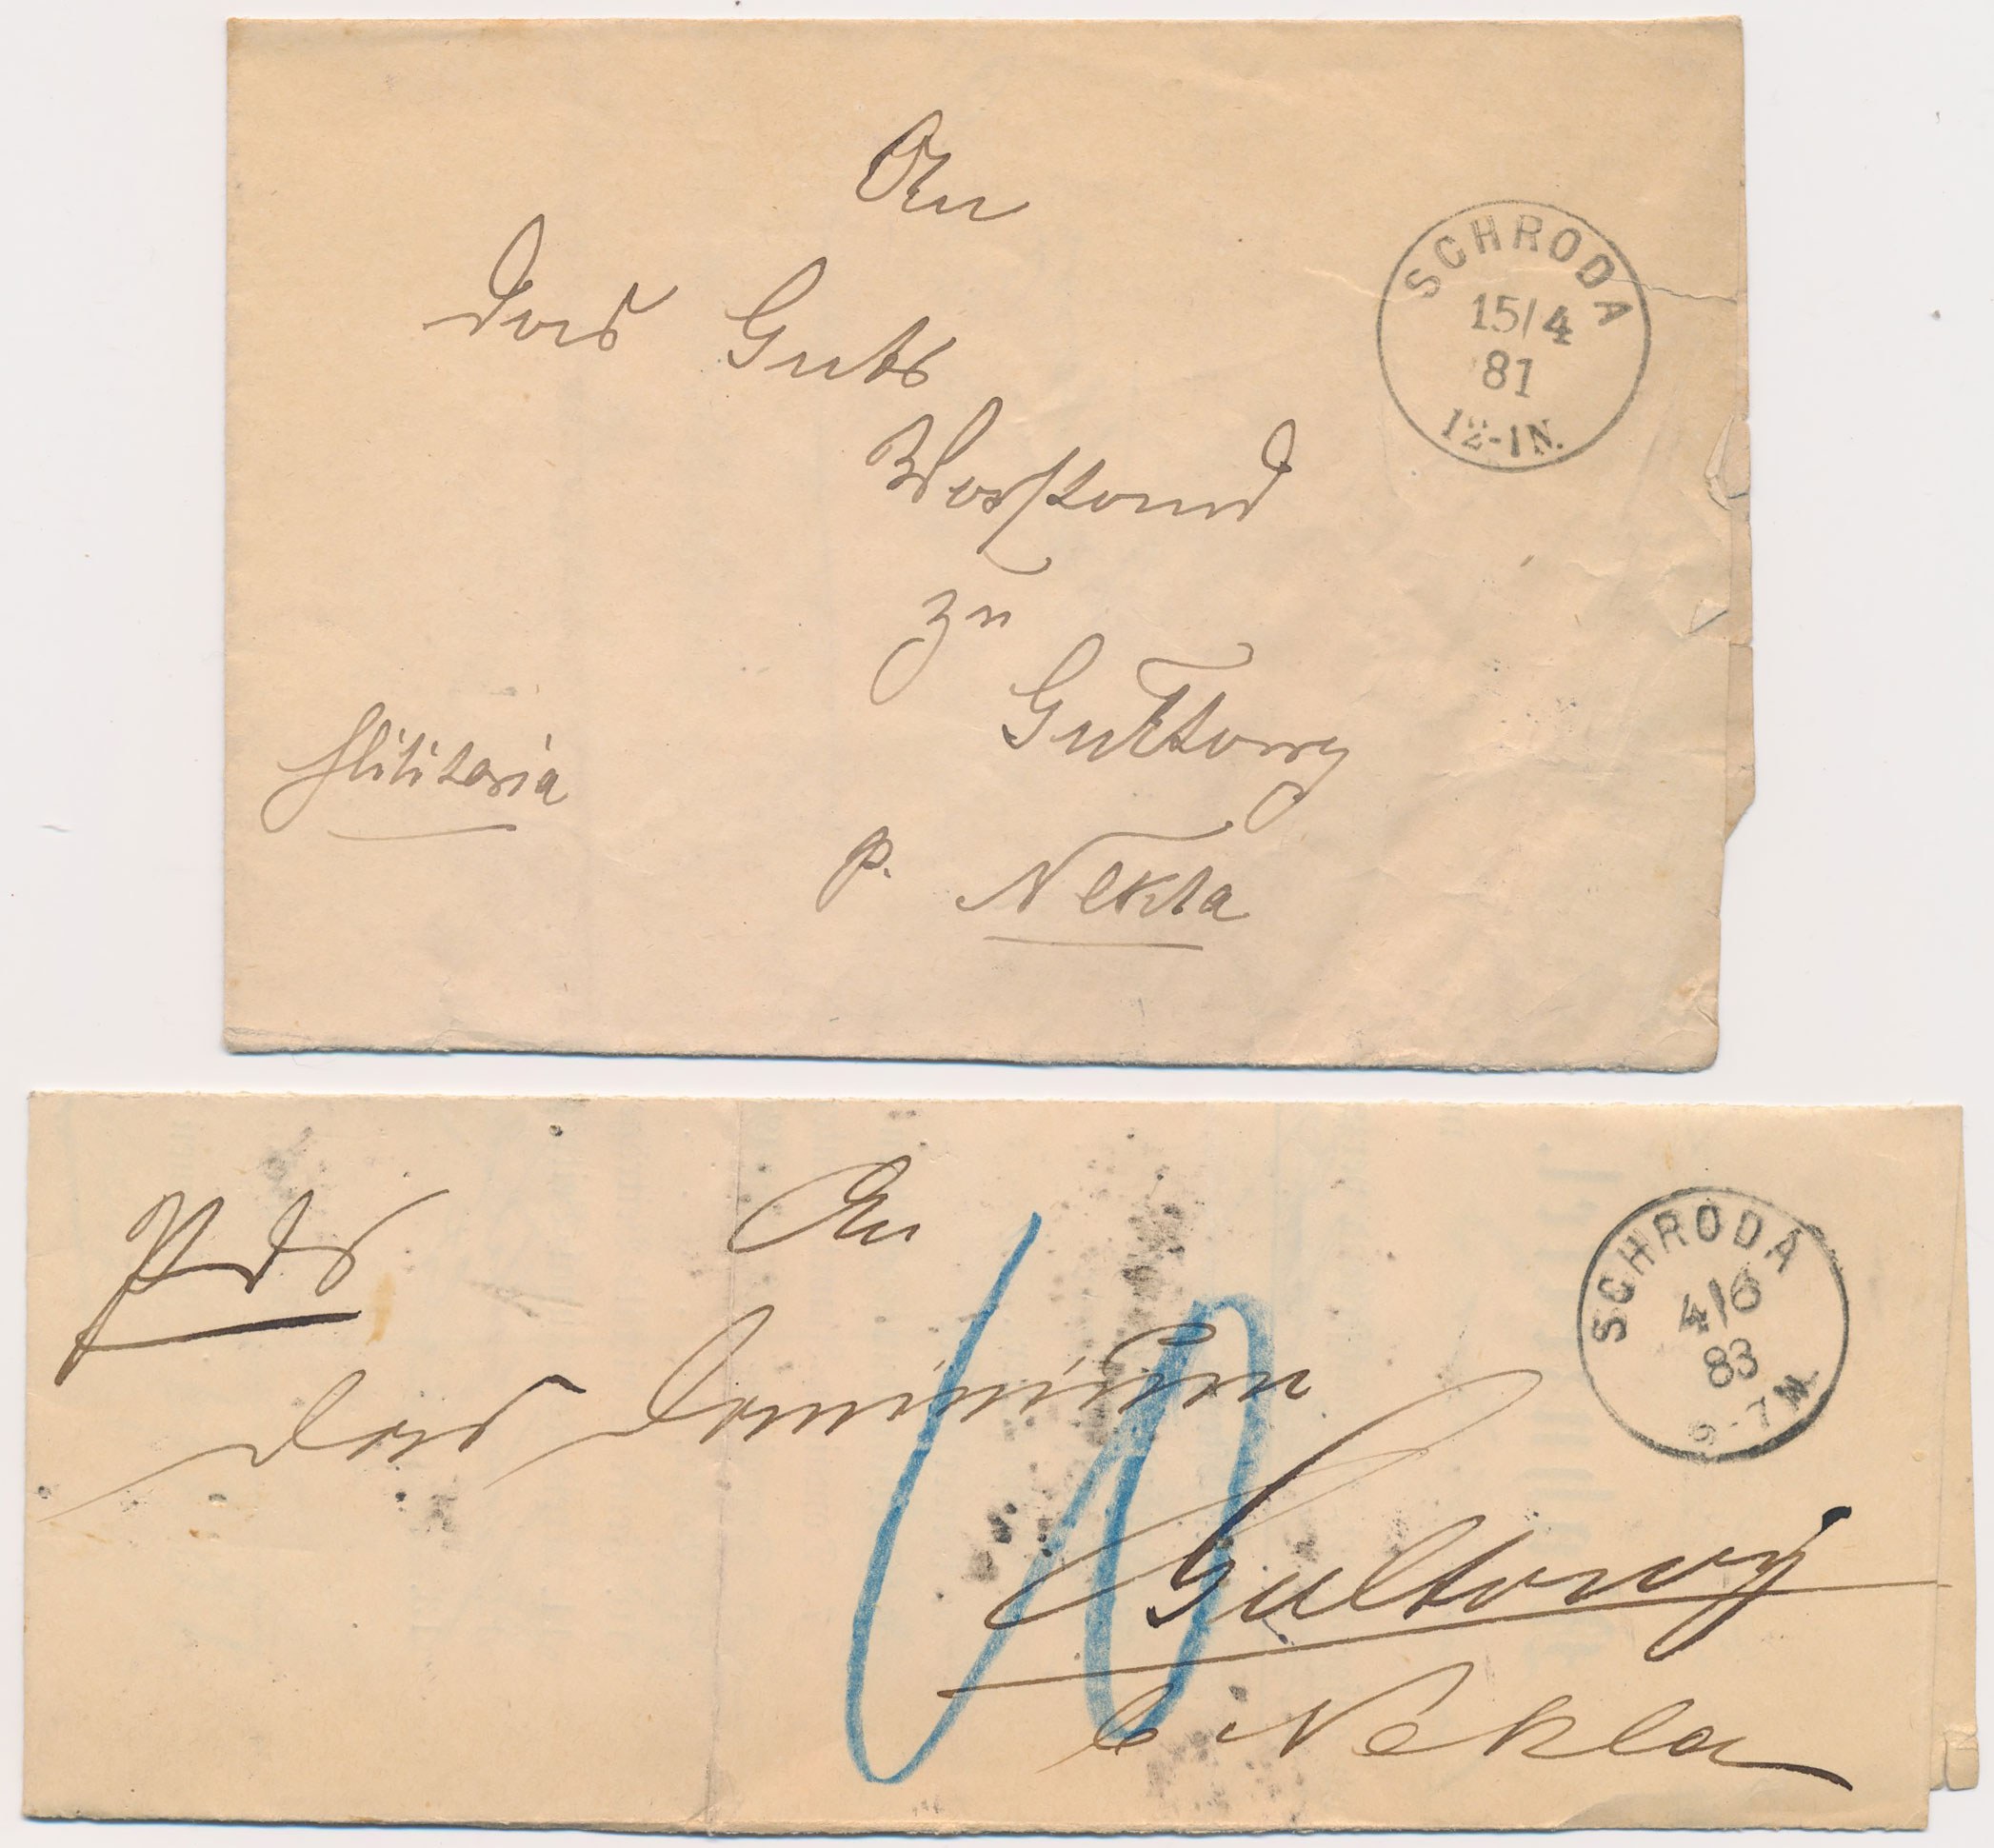 An
das Guts
Vorstand
zu
Gultowy
Militaria
p. Nekla
SCHRODA
15/4
81
12-1N.
An
das Dominium
Gultowy
b Nekla
10
SCHRODA
4/6
83
6-7N.